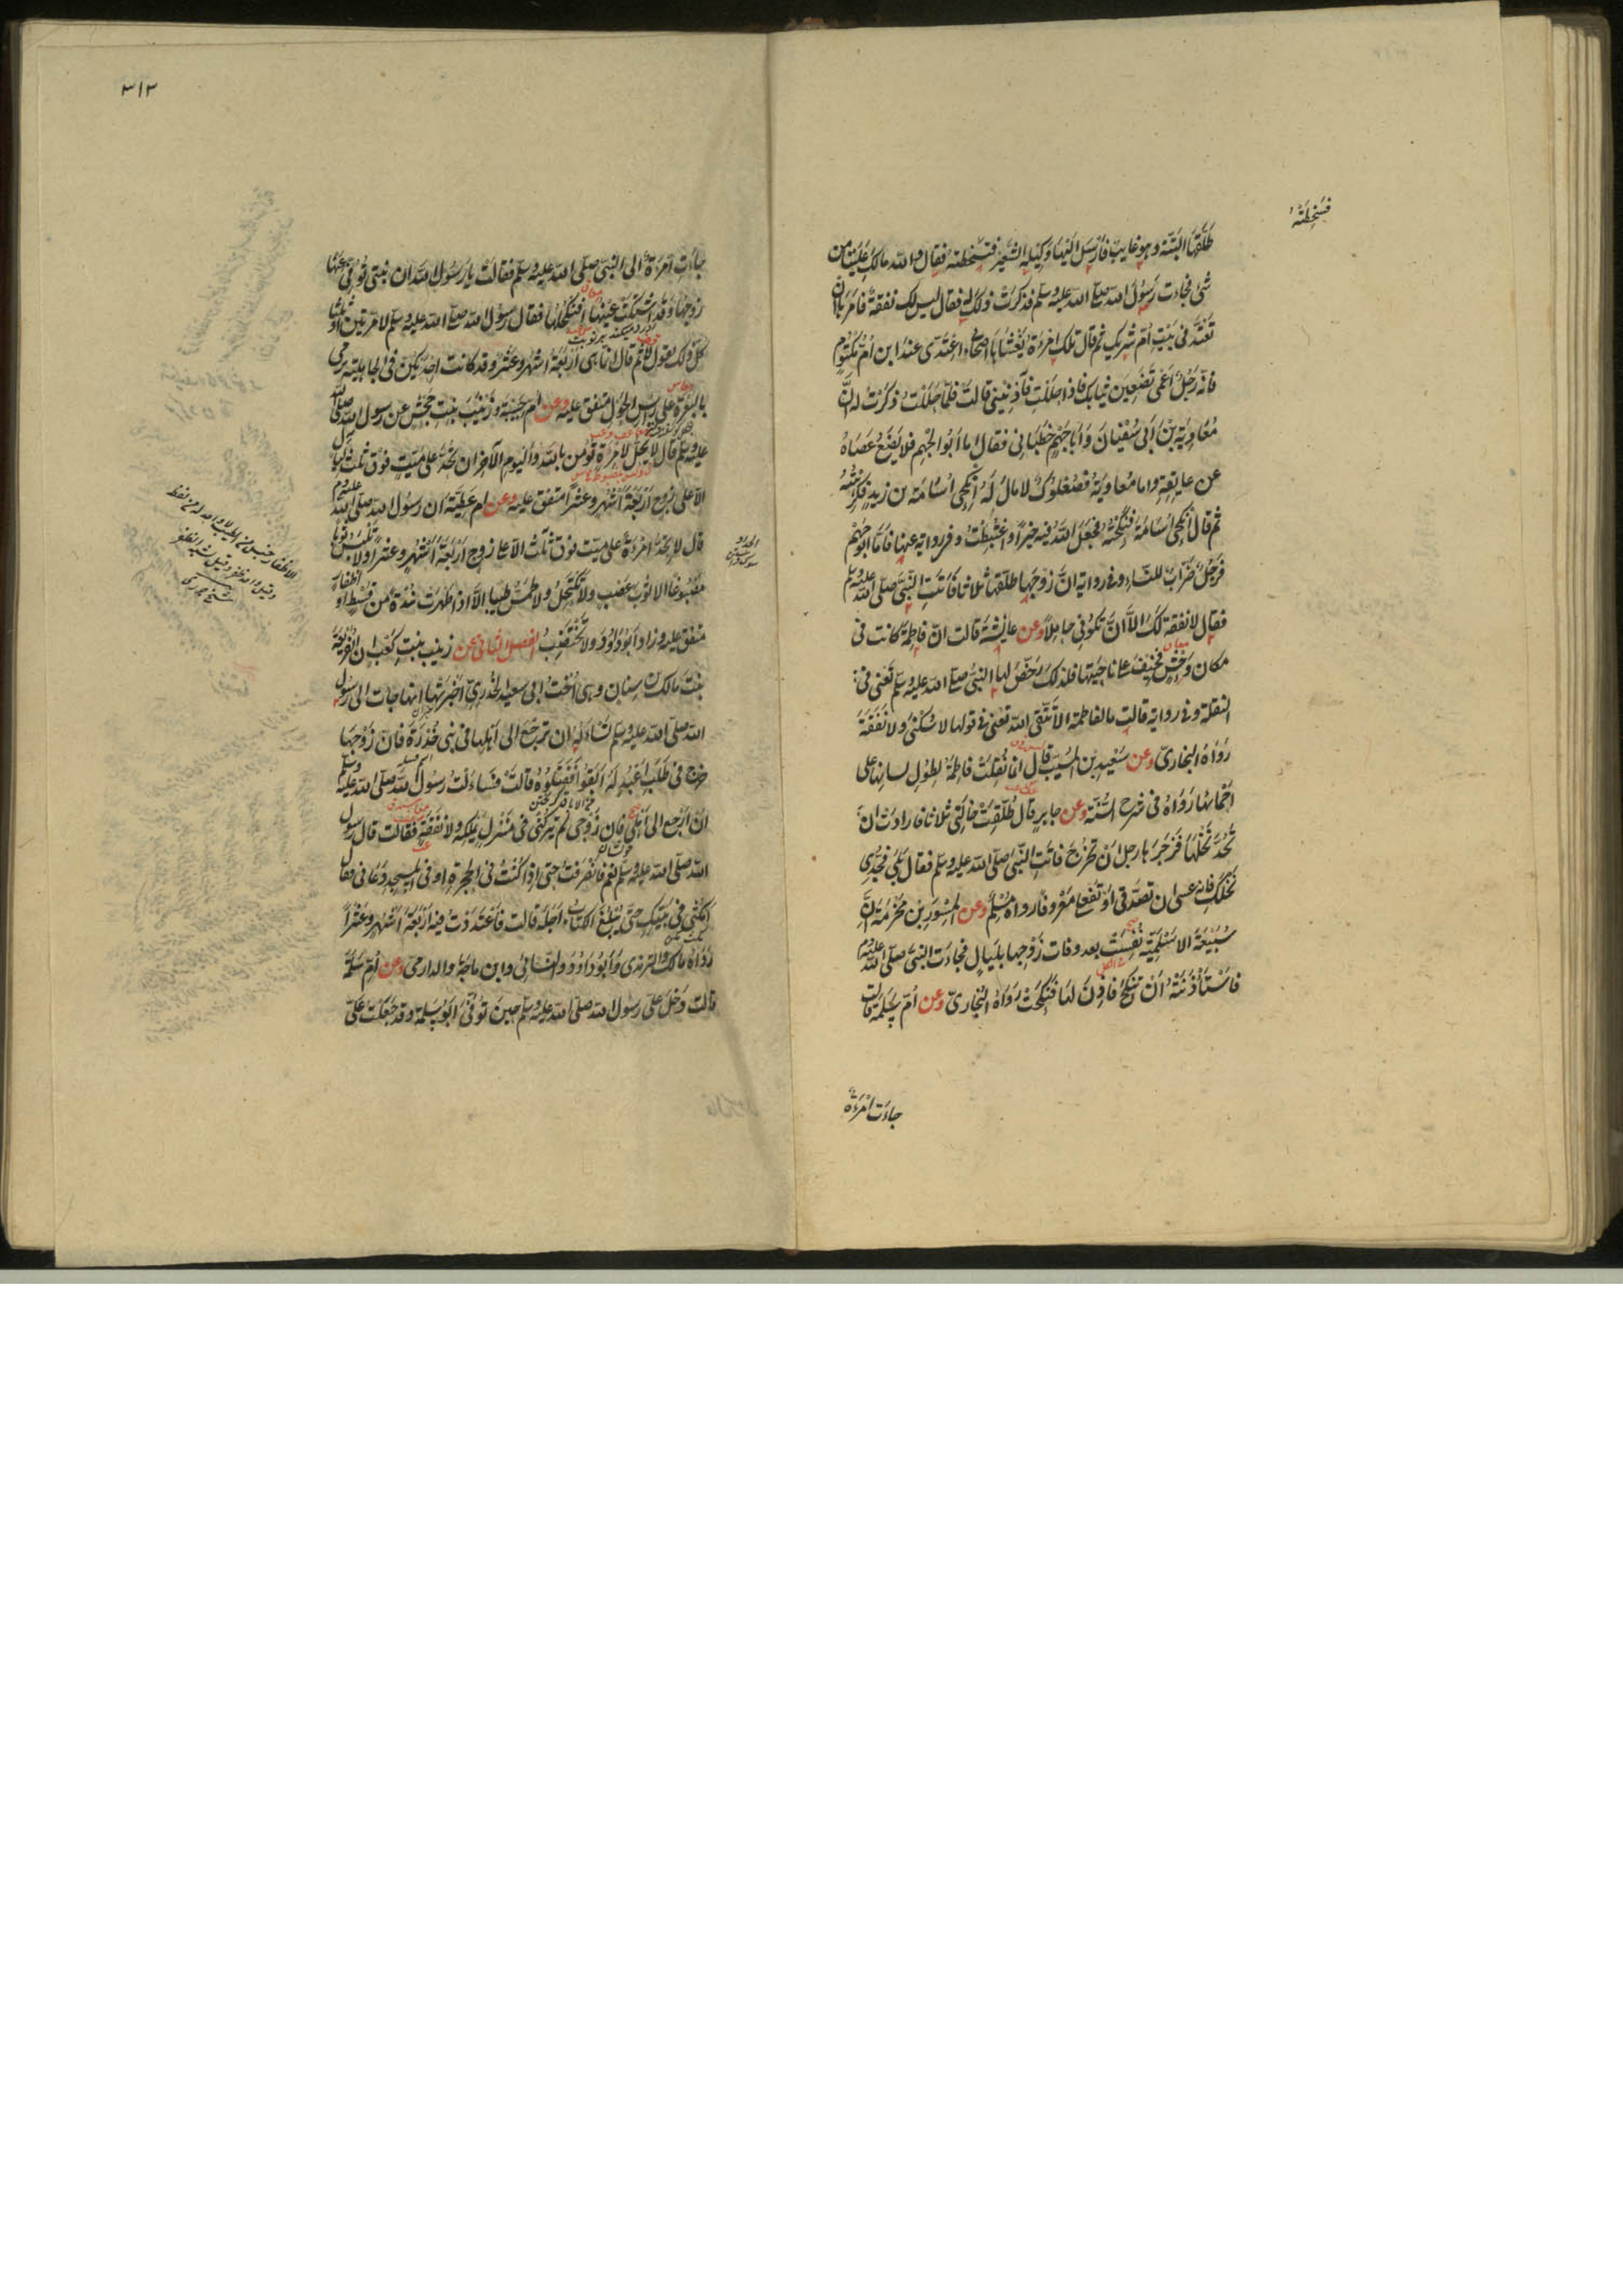 فَسَخِطَتْهُ
طَلَّقَهَا البَتَّةَ وهو غايبٌ فَأَرْسَلَ اِلَيْهَا وَكِيْلَهُ الشَّعِيْرَ فَسَخِطَتْهُ فقال والله مالكِ عَلَيْنا من
شئ فجاءت رَسُوْلَ الله صلى الله عليه وسلم فذكَرَتْ ذلك له فقال ليس لك نفقة فامَرَهَا اَنْ
تَعْتَدَّ فى بَيْتِ اُمِّ شريك ثم قال تلك امْرَءَةٌ يَغْشَاهَا اَصْحَابى اعْتَدِّى عندَ ابن اُمِّ مَكْتُومٍ
فانه رَجُلٌ اَعْمَى تَضَعِيْنَ ثِيَابَكِ فاذا حَلَلْتِ فَآذِنِيْنِى قالت فَلَمَّا حَلَلْتُ ذكَرْتُ له اَنَّ
مُعَاوِيَةَ بْنَ اَبِى سُفْيَانَ وَاَبَا جَهْمٍ خَطَبَانِى فقال اما اَبُو الجَهْمِ فلا يَضَعُ عَصَاهُ
عن عاتِقِهِ واما مُعَاوِيَةُ فَصُعْلُوكٌ لا مال لَهُ اِنْكِحِى اُسَامَةَ بن زيدٍ فَكَرِهْتُهُ
ثم قال اِنْكِحِى اُسَامَةَ فَنَكَحْتُهُ فجَعَلَ اللهُ فيه خيراً واغْتَبَطْتُ وفى رواية عنها فاما ابوجَهْمٍ
فَرَجُلٌ ضَرَّابٌ للنساء وفى رواية انَّ زَوْجَهَا طلَّقَهَا ثلاثا فَاَتَتِ النَّبِىَّ صلى الله عليه وسلم
فقال لا نفقة لكِ الاَّ اَنْ تَكُوْنِى حاملاً وعن عائشة قالت انّ فاطِمَةَ كانت فى
مكان وَحْشٍ فخِيْفَ على ناحِيَتِها فلذلك رَخَّصَ لها النبىُّ صلى الله عليه وسلم تَعْنِى فى
النقلة وفى رواية قالت ما لفاطمة الاَ تَتَّقِى الله تعنى فى قولها لا سُكْنَى ولا نَفَقَةَ
رَوَاهُ البخارىّ وعن سَعِيْدِ بْنِ المُسَيِّب قال انما نُقِلَتْ فاطِمَةُ لِطُوْلِ لسانِها على
اَحْمَائِهَا رَوَاهُ فى شرح السُّنَّة وعن جابرٍ قال طُلِّقَتْ خالَتِى ثلاثا فارادت اَنْ
تَجُدَّ نَخْلَهَا فَزَجَرَهَا رجل اَنْ تَخْرُجَ فاتَتِ النَّبِىَّ صلى الله عليه وسلم فقال بَلَى فَجُدِّى
نَخْلَكِ فانه عسى ان تَصَدَّقِى اَوْ تَفْعَلِى مَعْرُوفاً رواه مُسْلِمٌ وعن المِسْوَرِ بْنِ مَخْرَمَةَ اَنَّ
سُبَيْعَةَ الاَسْلَمِيَّةَ نُفِسَتْ بعد وفات زَوْجِها بلَيَالٍ فجاءَت النبىَّ صلى الله عليه وسلم
فاسْتَأْذَنَتْهُ اَنْ تَنْكِحَ فاذِنَ لها فَنَكَحَتْ رَوَاهُ البخارىّ وعن اُمِّ سَلَمَةَ قالت
جاءَت امْرَءَةٌ
٣١٢
جاءَتِ امْرَءَةٌ الى النبىِّ صلى الله عليه وسلم فقالت يا رسُول الله ان بنتى تُوُفِّىَ عنها
زوجها وقد اشتكَتْ عينها افَنَكْحُلُهَا فقال رسُوْل الله صلى الله عليه وسلم لا مرتين اَوْ ثلثا
كُلُّ ذلك يقول لا ثم قال انما هى اَرْبَعَةُ اَشْهُرٍ وعَشْرٌ وقد كانت اِحْديكنَّ فى الجاهلية ترمى
بالبَعْرَةِ على رأسِ الحَوْل متفق عليه وعن اُمِّ حَبِيْبَةَ وَزَيْنَبَ بِنْتِ جَحْشٍ عن رسول الله صلى الله
عليه وسلم قال لا يَحِلُّ لامْرَءَةٍ تُؤْمِن بالله واليوم الآخِر ان تَحُدَّ على مَيِّتٍ فوق ثلث ليال
الاّ على زوج اَرْبَعَةَ اَشْهُرٍ وعشراً متفق عليه وعن ام عَطِيَّةَ ان رسُول الله صلى الله عليه وسلم
قال لا تَحُدُّ امْرَءَةٌ على ميت فوق ثلث الاّ على زوجٍ اَرْبَعَةَ اَشْهُرٍ وعشراً ولا تَلْبَسُ ثوباً
مصْبُوغاً الا ثوبَ عَصْبٍ ولا تَكْتَحِلُ ولا تَمَسُّ طيباً الاَّ اذا طَهُرَت نُبْذَةً من قُسْطٍ او اظفار
متفق عليه وزاد اَبُوْ دَاوُدَ ولا تَخْتَضِبُ الفصل الثانى عن زينب بِنْتِ كَعْبٍ ان الفُرَيْعَةَ
بِنْتَ مالك بْن سِنان وهى اُخْتُ ابى سعيد الخدرىّ اَخْبَرَتْها انها جاءت الى رَسُوْل
الله صلى الله عليه وسلم تَسْاَلُهُ ان ترجعَ الى اَهْلِها فى بنى خُدْرَةَ فانّ زَوْجَهَا
خرج فى طَلَبِ اَعْبُدٍ لَهُ اَبَقُوا فَقَتَلُوْهُ قالت فساءلت رسُوْل الله صلى الله عليه وسلم
اَنْ اَرْجِعَ الى اَهْلِى فان زَوْجِى لم يَتْرُكْنِى فى مَنْزِلٍ يَمْلِكُهُ ولا نَفَقَةٍ فقالت قال رسول
الله صلى الله عليه وسلم نعم فانْصَرَفْتُ حتى اذا كنتُ فى الحُجْرَةِ او فى المسجد دَعَانِى فقال
اُمْكُثِى فى بَيْتِكِ حتَّى يَبْلُغَ الكتابُ اَجَلَهُ قالت فاعْتَدَدْتُ فيه اَرْبَعَةَ اَشْهُرٍ وعَشْراً
رَوَاهُ مالك والترمذى وَاَبُوْ دَاوُدَ والنسائىّ وابن ماجَةَ والدارمىّ وعن اُمِّ سَلَمَةَ
قالت دَخَلَ عَلَىَّ رسول الله صلى الله عليه وسلم حِينَ تُوُفِّىَ اَبُوْ سَلَمَةَ وقد جَعَلْتُ عَلَىَّ